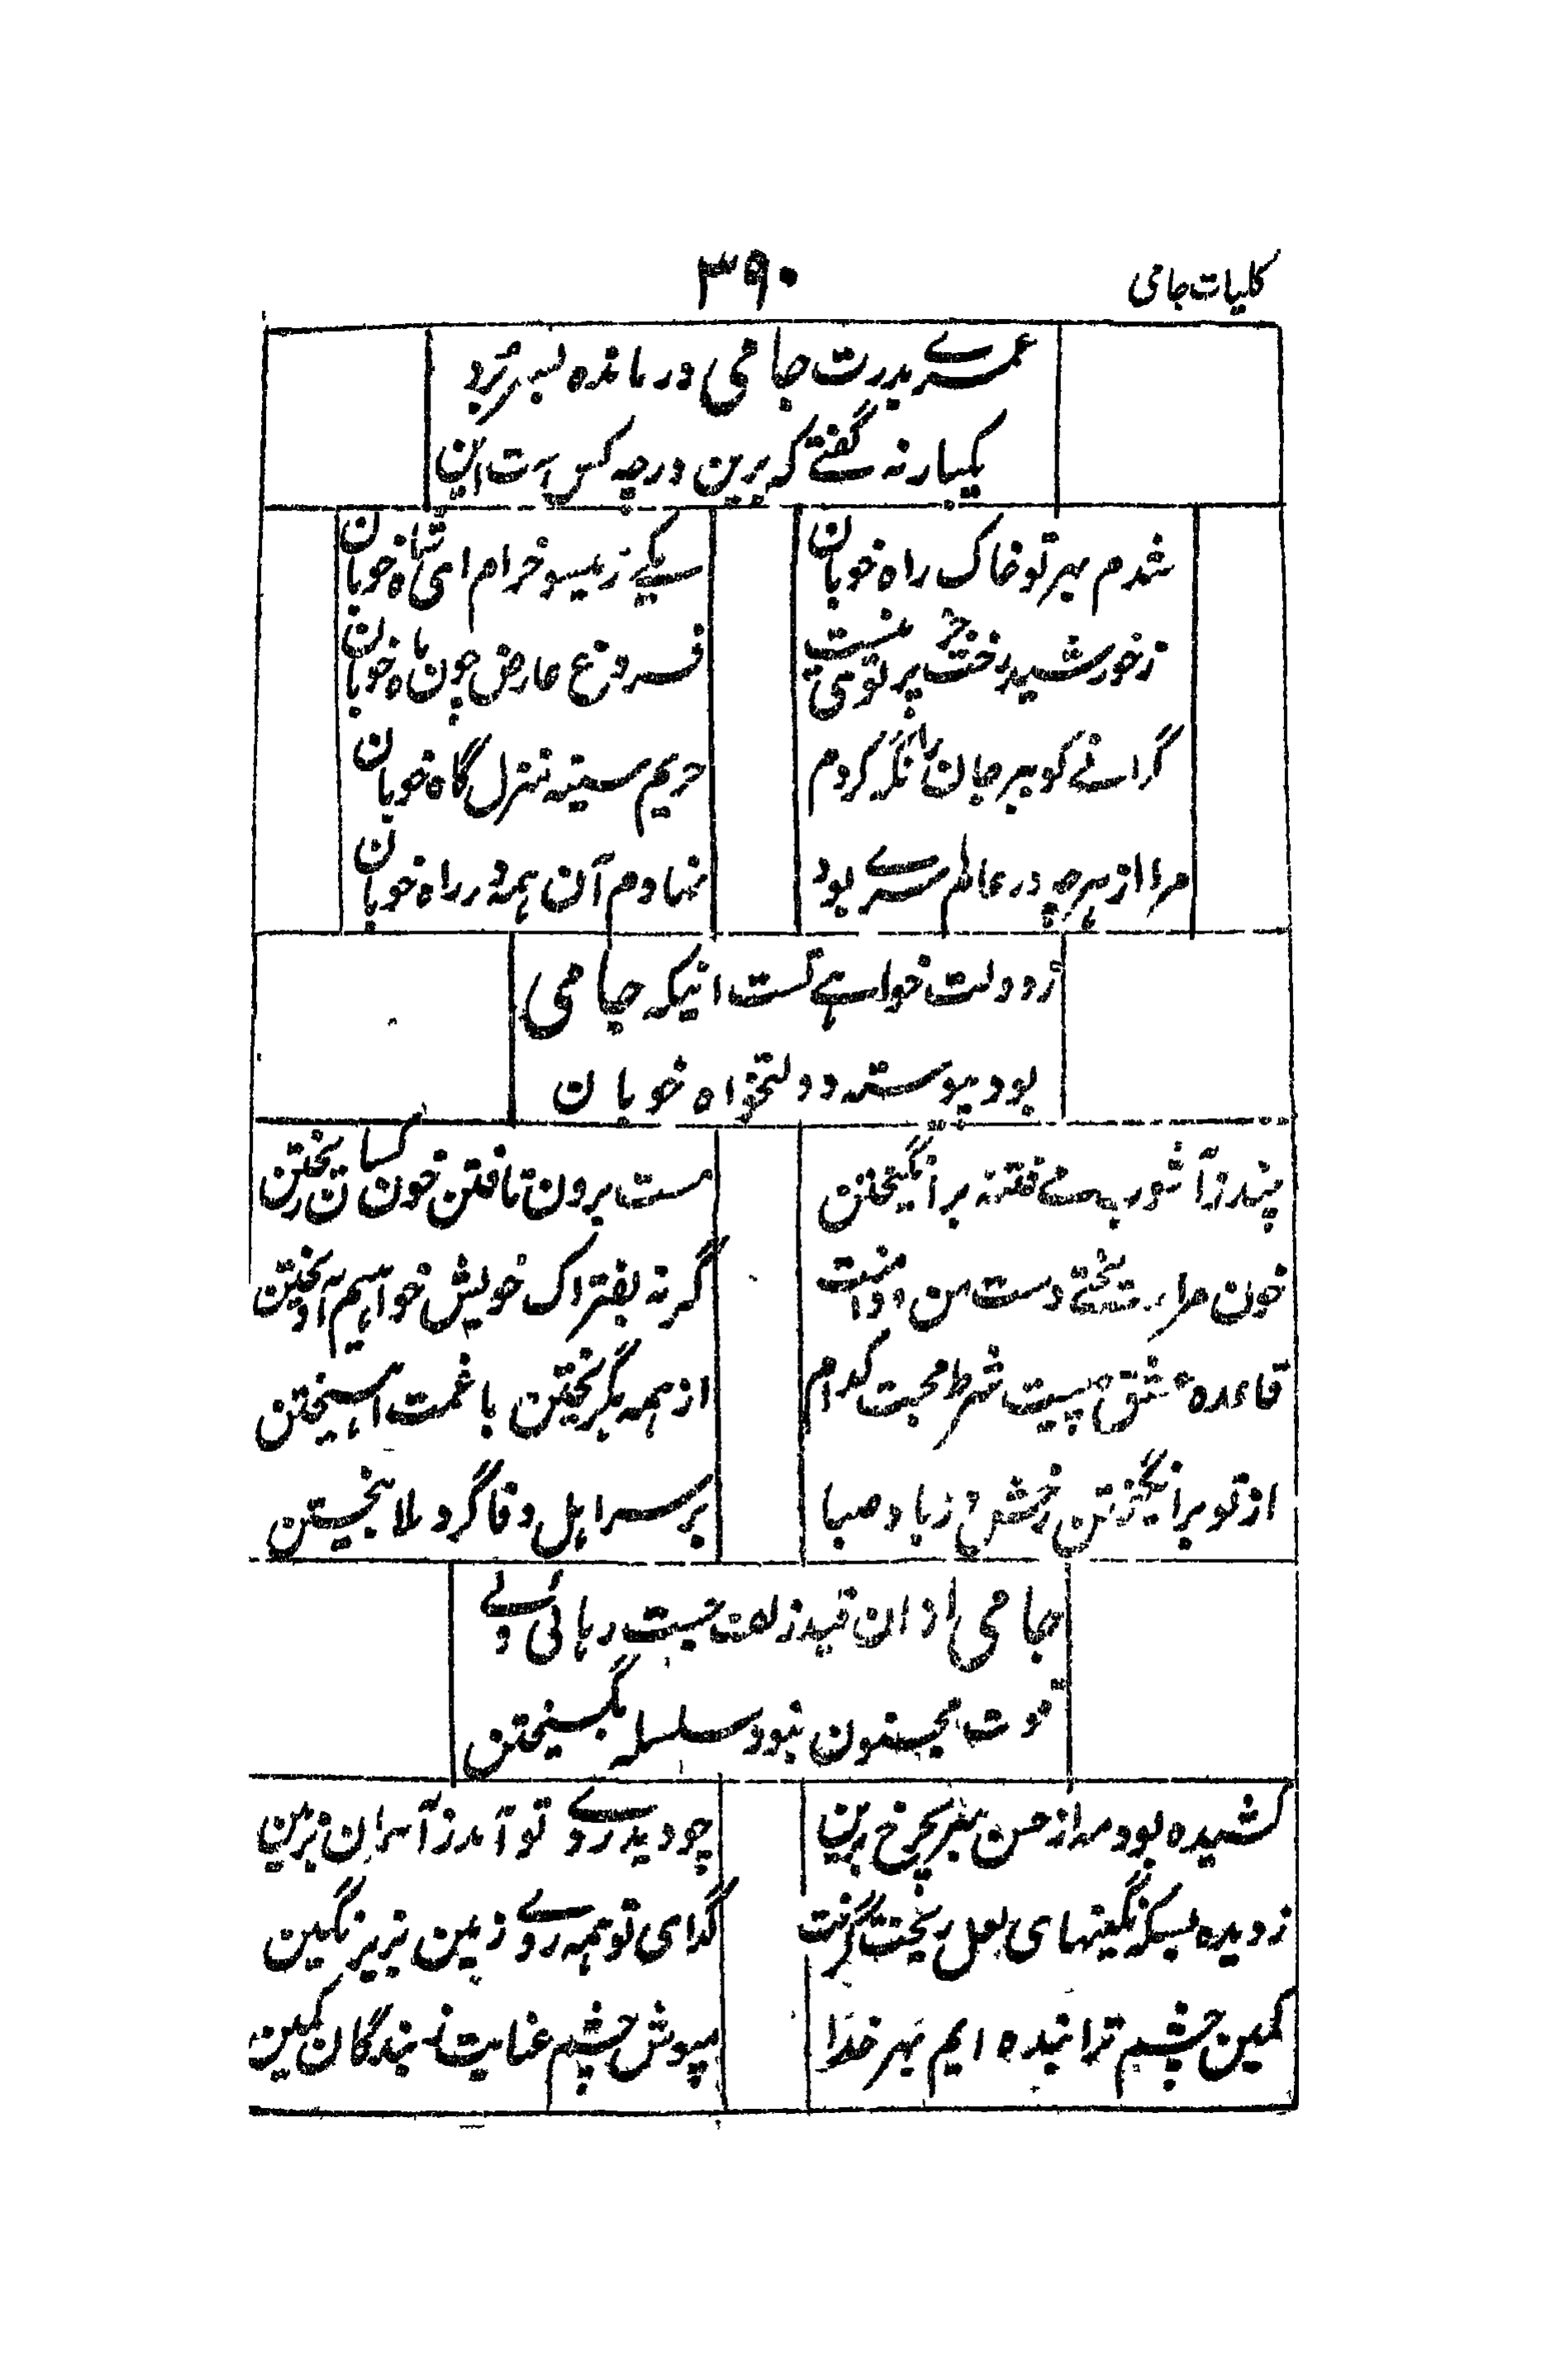 کلیات جامی
۳۹۰
عمرے بدرت جامی درمانده بسر برد
یکبار نه گفتے که برین در چه کس است این
شدم بهر تو خاک راه خوبان
یکے زینسو خرام ای شاه خوبان
ز خورشید رخت جز پرتوی نیست
فروغ عارض چون ماه خوبان
گرانے کو بهر جان را نگر کردم
حریم سینه منزل گاه خوبان
مرا از هرچه در عالم سرے بود
نهادم آن همه در راه خوبان
ز دولت خواهے تست اینکه جامی
بود پیوسته دولتخواه خوبان
چند ز آشوب مے فتنه برانگیختن
مست برون تافتن خون کسان ریختن
خون مرا ریختے دست من و دامنت
گرنه بفتراک خویش خواهیم آویختن
قاعده عشق چیست شرط محبت کدام
از همه بگریختن با غمت آمیختن
از تو برانگیختن رخش و ز باد صبا
بر سر اهل وفا گرد بلا بیختن
جامی ازان قید زلف جست رهائی ولے
قوت مجنون نبود سلسله بگسیختن
کشیده بود مه از حسن سر بچرخ برین
چو دید روے تو آمد ز آسمان بزمین
ز دیده بسکه نگینهای لعل ریخت گرفت
گدای تو همه روے زمین بزیر نگین
کمین چشم ترا بنده ایم بهر خدا
مپوش چشم عنایت ز بندگان کمین